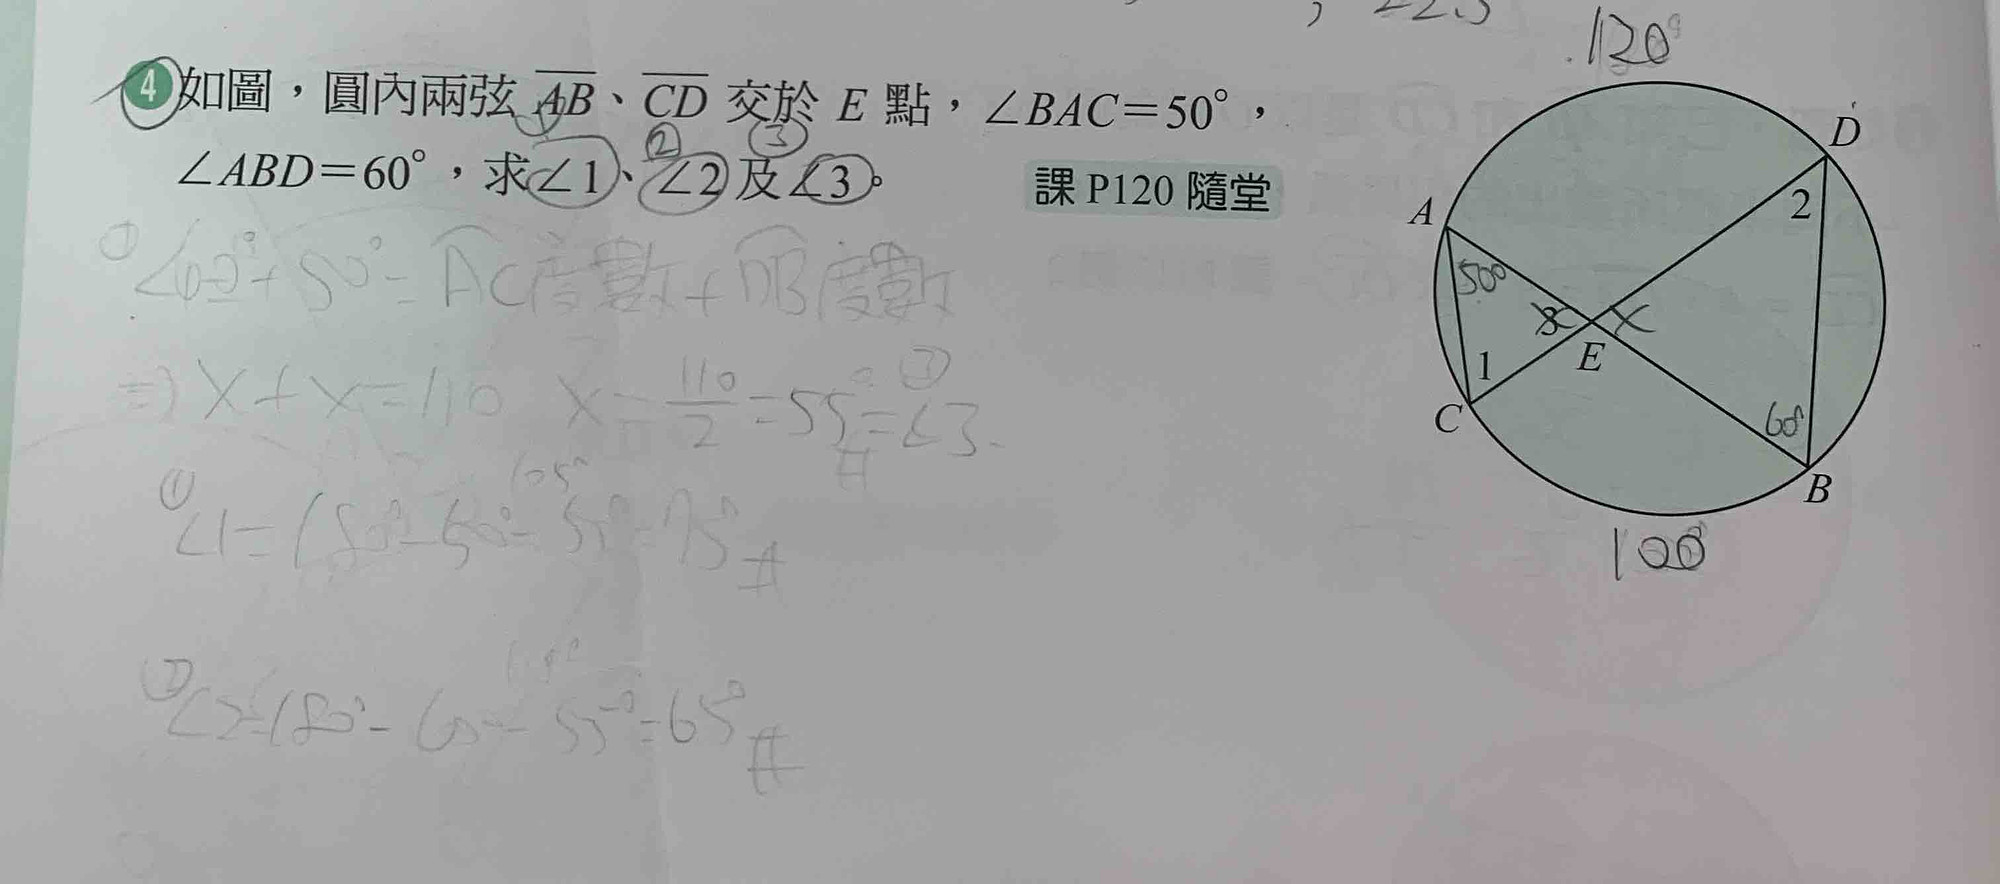 120°
4 如圖，圓內兩弦 AB、CD 交於 E 點，∠BAC＝50°，
∠ABD＝60°，求∠1、∠2及∠3。
課 P120 隨堂
① ② ③
① ∠60°+50°=AC度數+DB度數
⇒) x+x=110 x=110/2=55°=∠3
① ∠1=180°-50°-55°=75° #
② ∠2=180°-60-55°=65° #
A
D
50°
2
3
x
x
E
1
C
60°
B
100°